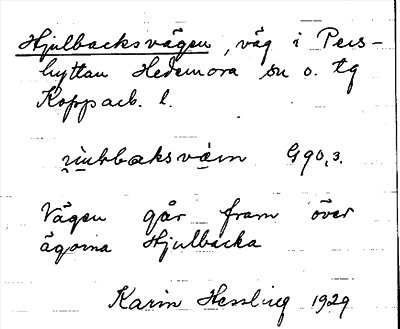 Hjulbacksvägen, väg i Pers-
hyttan Hedemora sn o. tg
Kopparb. l.
G90,3.
Vägen går fram över
ägorna Hjulbacka
Karin Hessling 1929